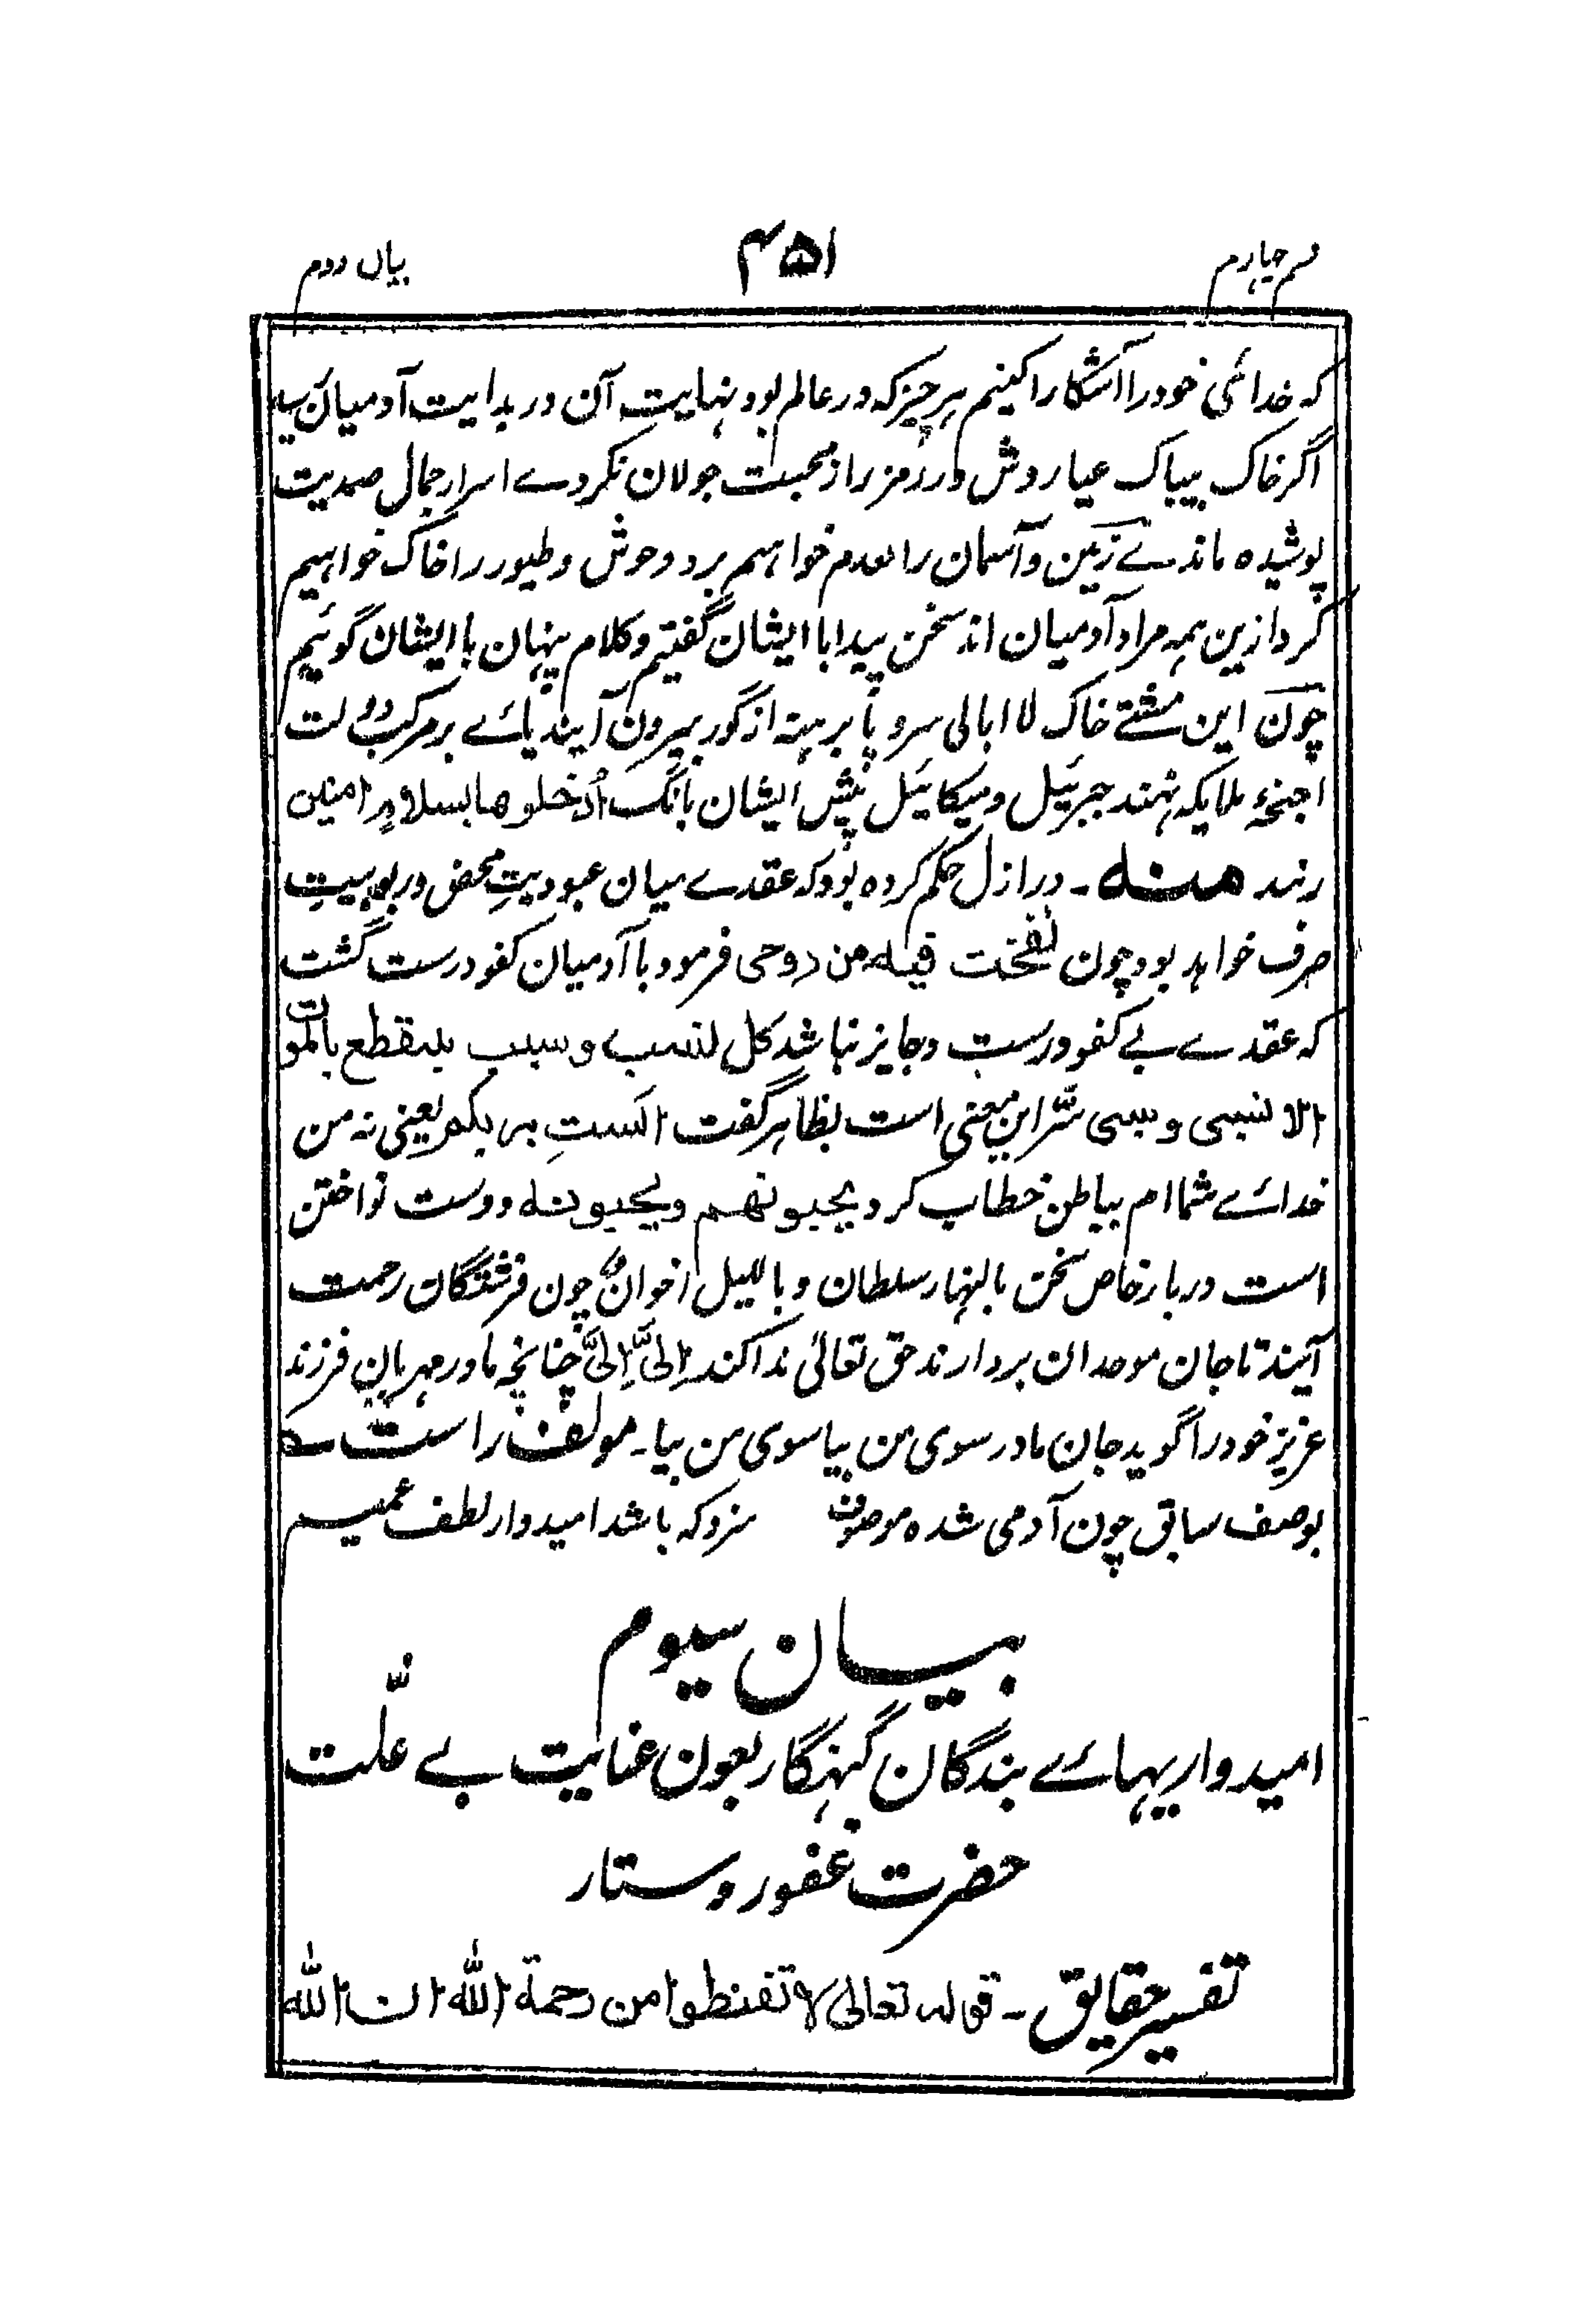 قسم چهارم ۴۵۱ بیان دوم
که خدائی خود را آشکارا کنیم هر چیز که در عالم بود نهایتِ آن در بدایت آدمیان
اگر خاک بیباک عیار وش در رمز راز محبت جولان نکردے اسرار جمال صمدیت
پوشیده ماندے زمین و آسمان را بعدم خواهم برد و وحوش و طیور را خاک خواهیم
کرد ازین همه مراد آدمیان اند سخن پیدا با ایشان گفتیم و کلام پنهان با ایشان گوئیم
چون این مشتے خاک لا ابالی سر و پا برهنه از گور بیرون آیند پائے بر مرکب دولت
اجنحۀ ملایکه نهند جبرئیل و میکائیل پیش ایشان بانگ اُدخلوها بسلامٍ امنین
زنند منه ـ در ازل حکم کرده بود که عقدے میان عبودیتِ محض و ربوبیتِ
صرف خواهد بود چون نفخت فیه من روحی فرمود با آدمیان کفو درست گشت
که عقدے بے کفو درست و جایز نباشد کل نسب و سبب ینقطع بالموت
الا نسبی و سببی سّر این معنی است بظاهر گفت الستِ بربکم یعنی نه من
خدائے شما ام بباطن خطاب کرد یحبونهم و یحبونه و دوست نواختن
است در بار خاص سخن بالنهار سلطان و باللیل اخوان چون فرشتگان رحمت
آیند تا جان موحدان بردارند حق تعالیٰ ندا کند اِلیَّ اِلیَّ چنانچه مادر مهربان فرزند
عزیز خود را گوید جان مادر سوی من بیا سوی من بیا ـ مولف راست ؎
بوصف سابق چون آدمی شده موصوف سزد که باشد امیدوار لطف عمیم
بیان سیوم
امیدواریهائے بندگان گنهگار بعون عنایت بے علّت
حضرت غفور و ستار
تفسیر حقایق ـ قوله تعالیٰ لا تقنطوا من رحمة الله ان الله